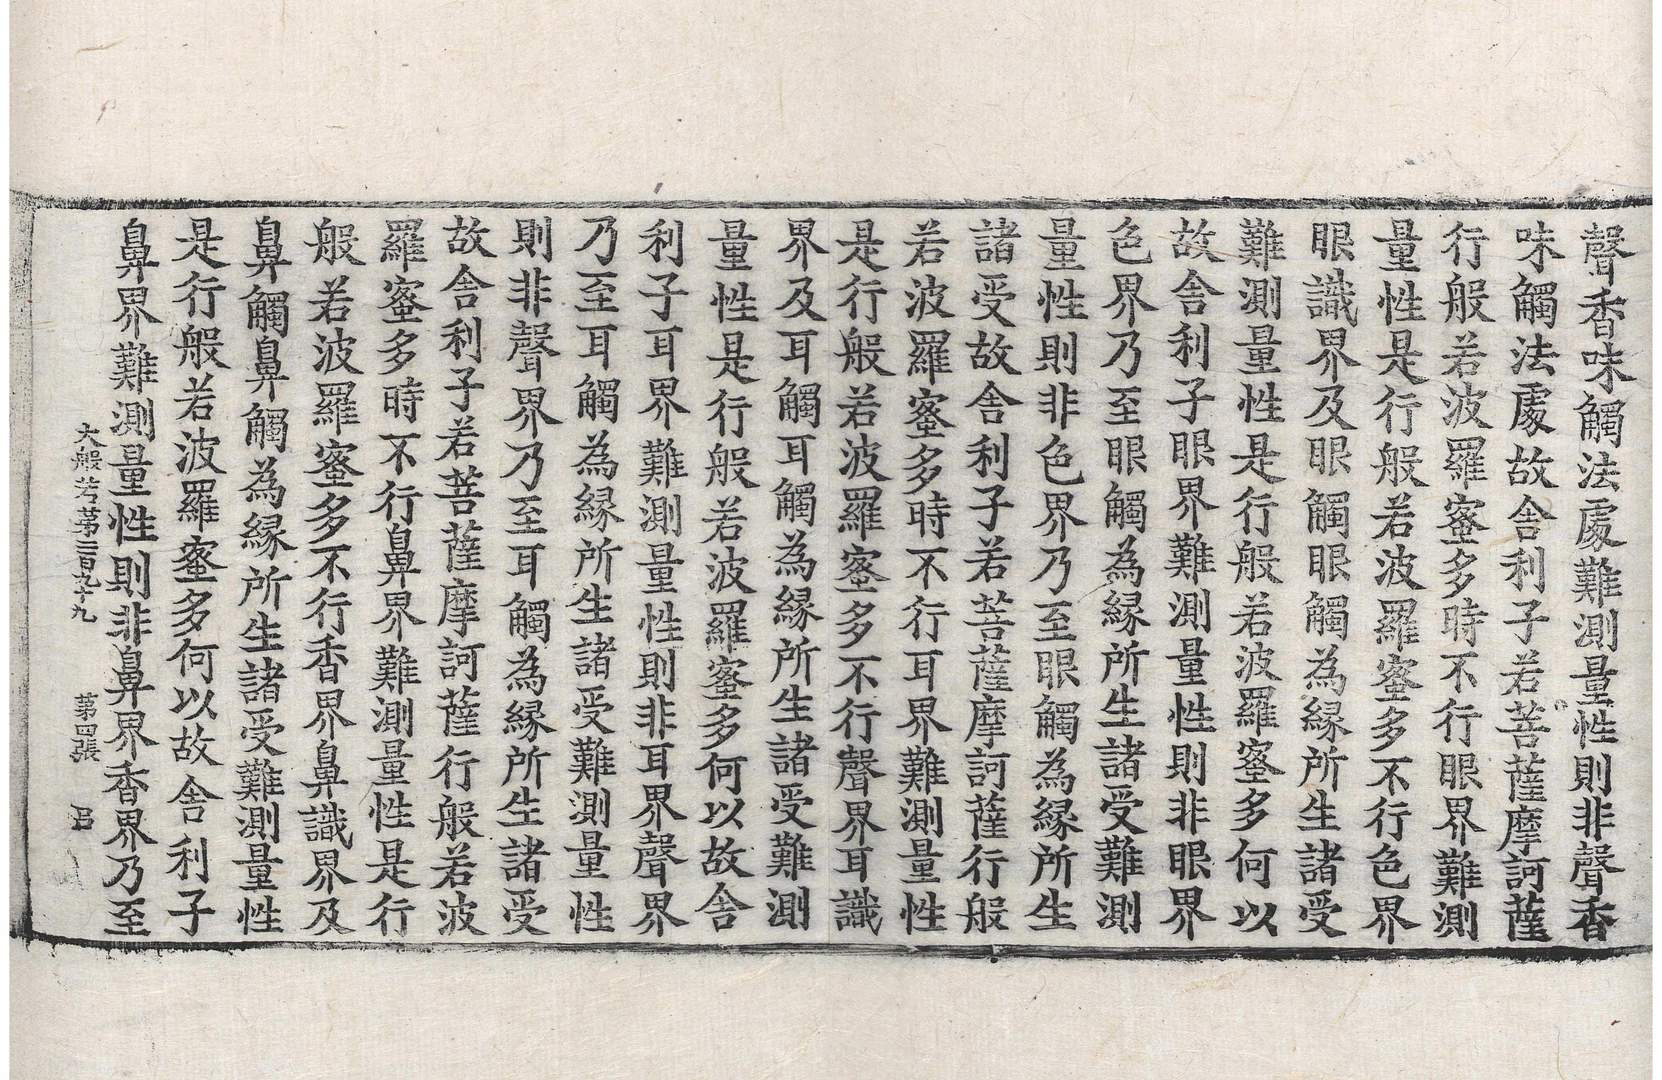 聲香味觸法處難測量性則非聲香
味觸法處故舍利子若菩薩摩訶薩
行般若波羅蜜多時不行眼界難測
量性是行般若波羅蜜多不行色界
眼識界及眼觸眼觸為緣所生諸受
難測量性是行般若波羅蜜多何以
故舍利子眼界難測量性則非眼界
色界乃至眼觸為緣所生諸受難測
量性則非色界乃至眼觸為緣所生
諸受故舍利子若菩薩摩訶薩行般
若波羅蜜多時不行耳界難測量性
是行般若波羅蜜多不行聲界耳識
界及耳觸耳觸為緣所生諸受難測
量性是行般若波羅蜜多何以故舍
利子耳界難測量性則非耳界聲界
乃至耳觸為緣所生諸受難測量性
則非聲界乃至耳觸為緣所生諸受
故舍利子若菩薩摩訶薩行般若波
羅蜜多時不行鼻界難測量性是行
般若波羅蜜多不行香界鼻識界及
鼻觸鼻觸為緣所生諸受難測量性
是行般若波羅蜜多何以故舍利子
鼻界難測量性則非鼻界香界乃至
大般若第二百九十九 第四張 呂